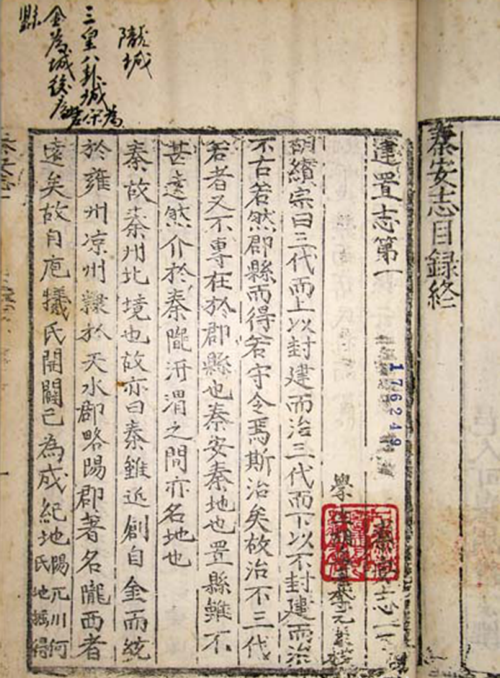 秦安志目録終
建置志第一
176249
秦安志一
學
胡纘宗曰三代而上以封建而治三代而下以不封建而治
不古若然郡縣而得若守令焉斯治矣故治不三代
若者又不專在於郡縣也秦安秦地也置縣雖不
甚遠然介於秦隴汧渭之間亦名地也
秦故秦州北境也故亦曰秦雖近創自金而統
於雍州凉州隸於天水郡略陽郡著名隴西者
遠矣故自庖犧氏開闢已為成紀地
川何
氏地得
隴城
三皇八卦城
金為城
縣